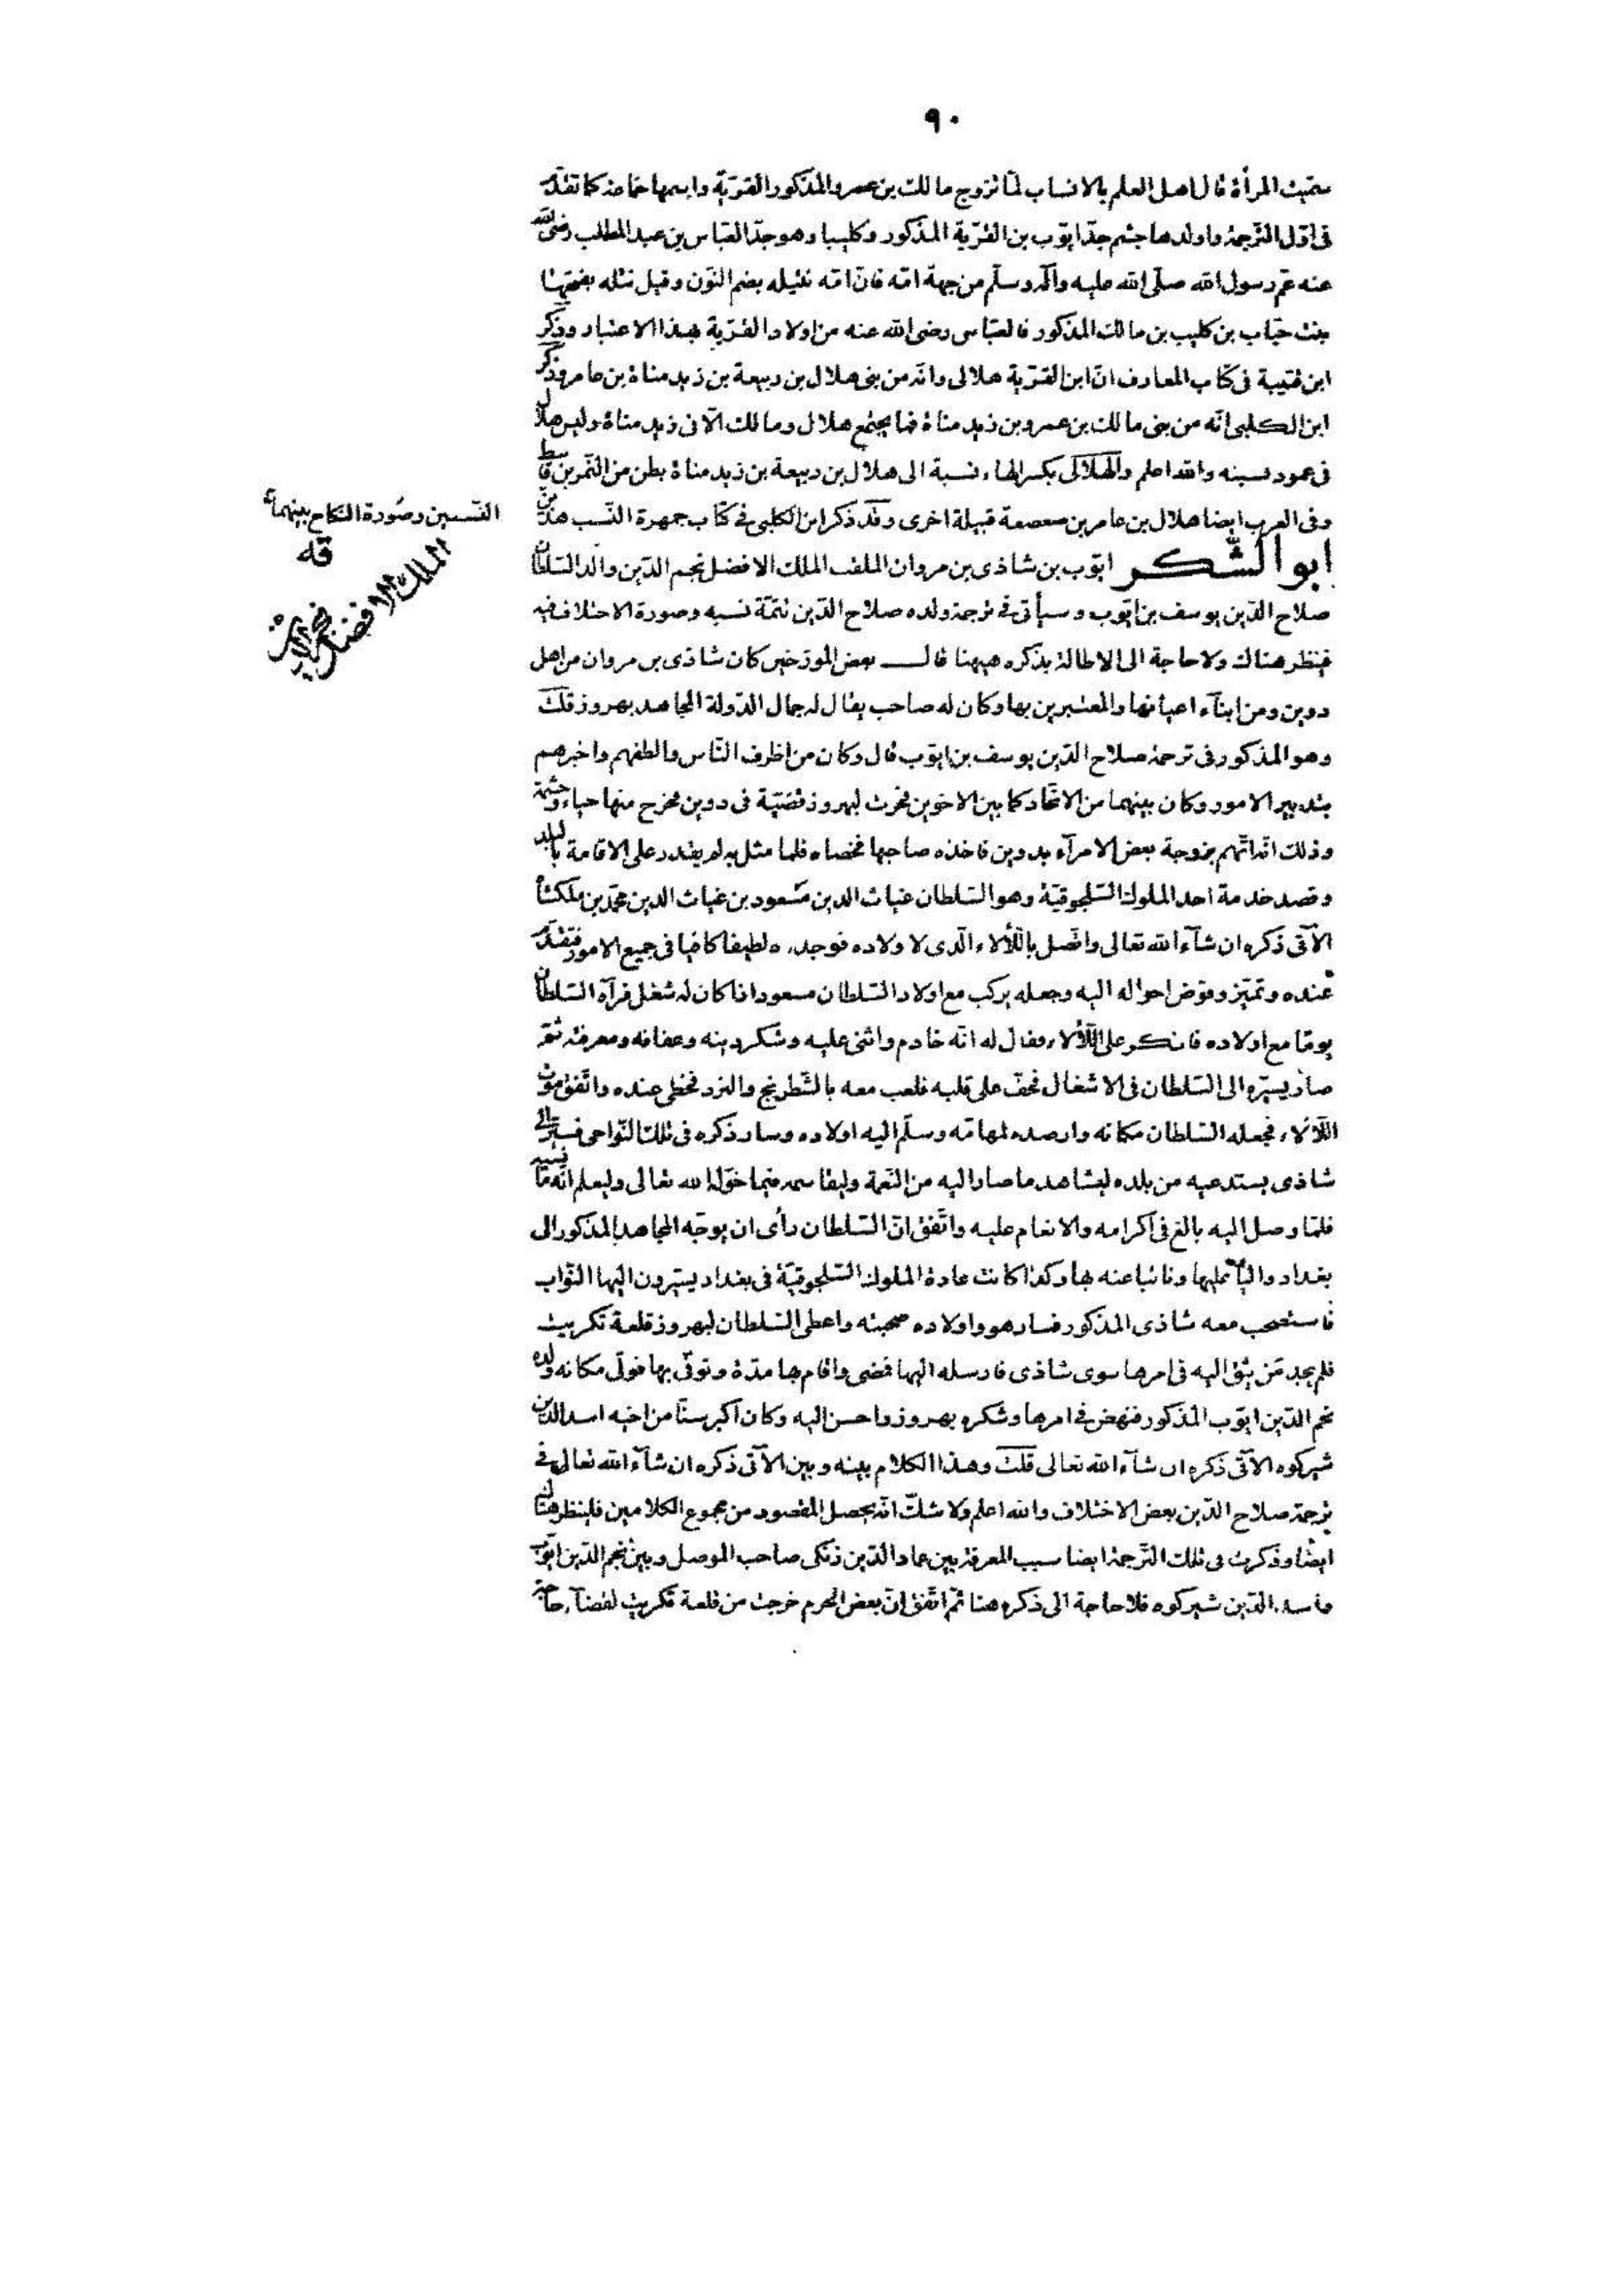 ٩٠
سميت المرأة قال اهل العلم بالانساب لما تزوج مالك بن عمرو المذكور القرية واسمها خماعة كما تقدّم
فى اوّل الترجمة واولدها جشم جدّ ايّوب بن القرّية المذكور وكليبا وهو جدّ العبّاس بن عبد المطلب رضى الله
عنه عمّ رسول الله صلّى الله عليه وآله وسلّم من جهة امّه فانّ امّه نثيله بضم النّون وقيل نثله بفتحها
بنت حبّاب بن كليب بن مالك المذكور فالعبّاس رضى الله عنه من اولاد القرّية بهذا الاعتبار وذكر
ابن قتيبة فى كتاب المعارف انّ ابن القرّية هلالى وانّه من بنى هلال بن ربيعة بن زيد مناة بن عامر وذكر
ابن الكلبى انّه من بنى مالك بن عمرو بن زيد مناة فما يجتمع هلال ومالك الّا فى زيد مناة وليس هلال
فى عمود نسبه والله اعلم والهلالى بكسر الهاء نسبة الى هلال بن ربيعة بن زيد مناة بطن من النّمر بن قاسط
وفى العرب ايضا هلال بن عامر بن صعصعة قبيلة اخرى وقد ذكر ابن الكلبى فى كتاب جمهرة النّسب هذين
النّسبين وصورة النكاح بينهما
ابو الشّكر ايّوب بن شاذى بن مروان الملقب الملك الافضل نجم الدّين والد السّلطان
الملك الافضل نجم الدين
صلاح الدّين يوسف بن ايّوب وسيأتى فى ترجمة ولده صلاح الدّين تتمّة نسبه وصورة الاختلاف فيه
فينظر هناك ولا حاجة الى الاطالة بذكره هيهنا قال بعض المورّخين كان شاذى بن مروان من اهل
دوين ومن ابنآء اعيانها والمعتبرين بها وكان له صاحب يقال له جمال الدّولة المجاهد بهروز قلت
وهو المذكور فى ترجمة صلاح الدّين يوسف بن ايّوب قال وكان من اظرف النّاس والطفهم واخبرهم
بتدبير الامور وكان بينهما من الاتّحاد كما بين الاخوين فجرت لبهروز قضيّة فى دوين فخرج منها حياء وحشمة
وذلك انّه اتّهم بزوجة بعض الامرآء بدوين فاخذه صاحبها فخصاه فلما مثل به لم يقدر على الاقامة بالبلد
وقصد خدمة احد الملوك السّلجوقيّة وهو السّلطان غياث الدين مسعود بن غياث الدين محمّد بن ملكشاه
الآتى ذكره ان شآء الله تعالى واتّصل باللّألاء الّذى لاولاده فوجده لطيفا كافيا فى جميع الامور فتقدّم
عنده وتميّز وفوّض احواله اليه وجعله يركب مع اولاد السّلطان مسعود اذا كان له شغل فرآه السّلطان
يومًا مع اولاده فانكر على اللّألاء فقال له انّه خادم واثنى عليه وشكر دينه وعفافه ومعرفته ثمّ
صار يسيّره الى السّلطان فى الاشغال فخفّ على قلبه فلعب معه بالشّطرنج والنرد فحظى عنده واتّفق موت
اللّألاء فجعله السّلطان مكانه وارصده لمهامّه وسلّم اليه اولاده وسار ذكره فى تلك النّواحى فسيّر الى
شاذى يستدعيه من بلده ليشاهد ما صار اليه من النّعمة وليقاسمه فيما خوّله الله تعالى وليعلم انّه ما نسيه
فلمّا وصل اليه بالغ فى اكرامه والانعام عليه واتّفق انّ السّلطان رأى ان يوجّه المجاهد المذكور الى
بغداد واليا عليها ونائبا عنه بها وكذا كانت عادة الملوك السّلجوقيّة فى بغداد يسيّرون اليها النّواب
فاستصحب معه شاذى المذكور فسار هو واولاده صحبته واعطى السّلطان لبهروز قلعة تكريت
فلم يجد من يثق اليه فى امرها سوى شاذى فارسله اليها فمضى واقام بها مدّة وتوفّى بها فولّى مكانه ولده
نجم الدّين ايّوب المذكور فنهض فى امرها وشكره بهروز واحسن اليه وكان اكبر سنّا من اخيه اسد الدّين
شيركوه الآتى ذكره ان شآء الله تعالى قلت وهذا الكلام بينه وبين الآتى ذكره ان شآء الله تعالى فى
ترجمة صلاح الدّين بعض الاختلاف والله اعلم ولا شكّ انّه يحصل المقصود من مجموع الكلامين فلينظر هناك
ايضًا وذكرت فى تلك التّرجمة ايضا سبب المعرفة بين عماد الدّين زنكى صاحب الموصل وبين نجم الدّين ايّوب
واسد الدّين شيركوه فلا حاجة الى ذكره هنا ثمّ اتّفق انّ بعض الحرم خرجت من قلعة تكريت لقضآء حاجة